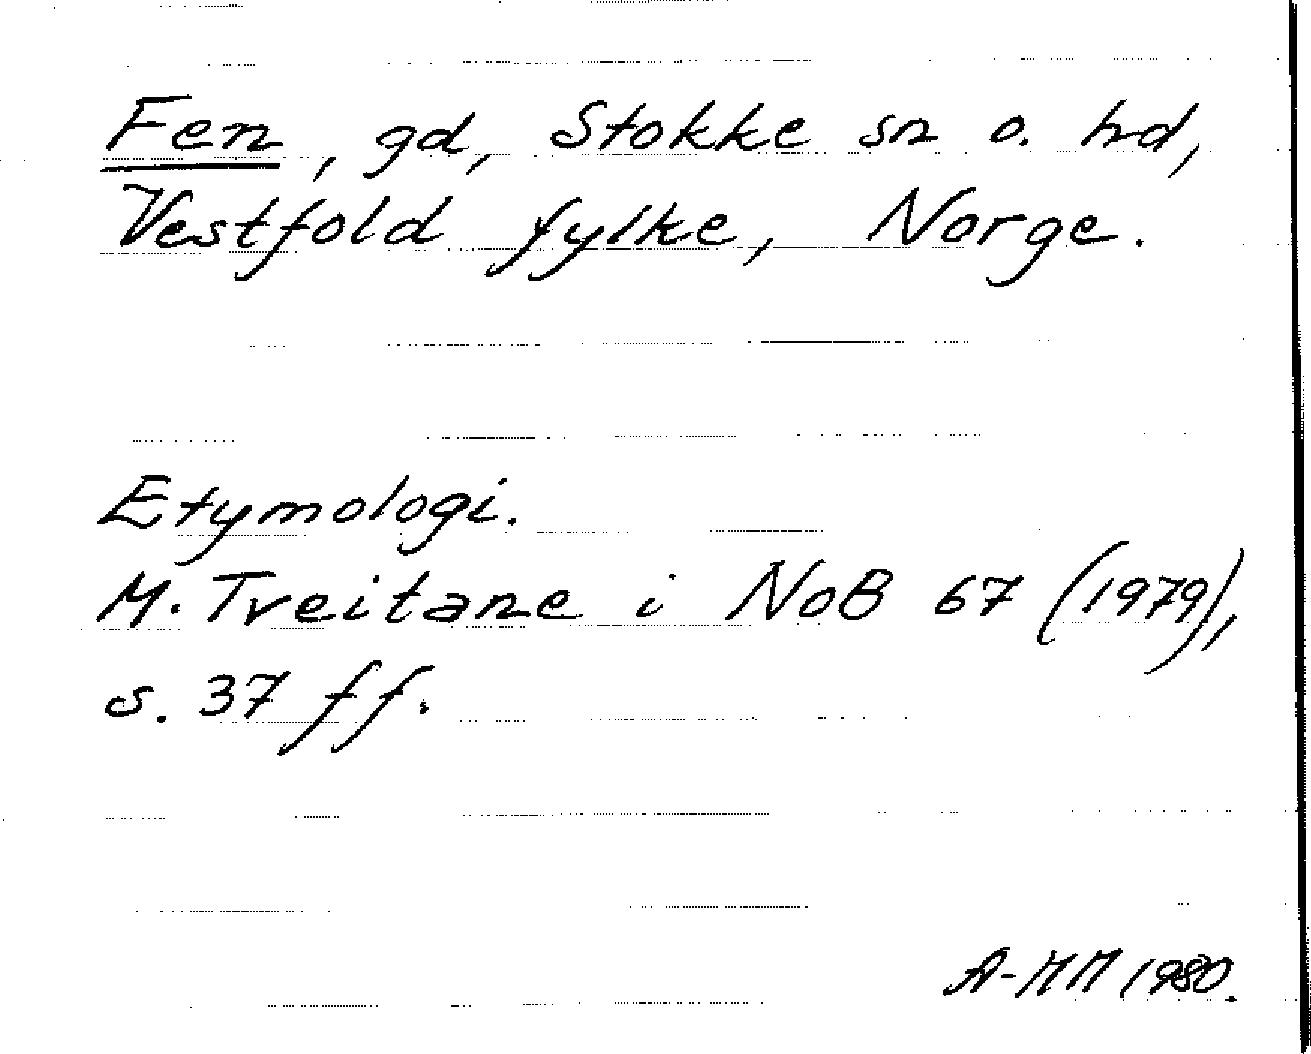 Fen, gd, Stokke sn o. hd,
Vestfold fylke, Norge.
Etymologi.
M. Tveitane i NoB 67 (1979),
s. 37 ff.
A-MM 1980.